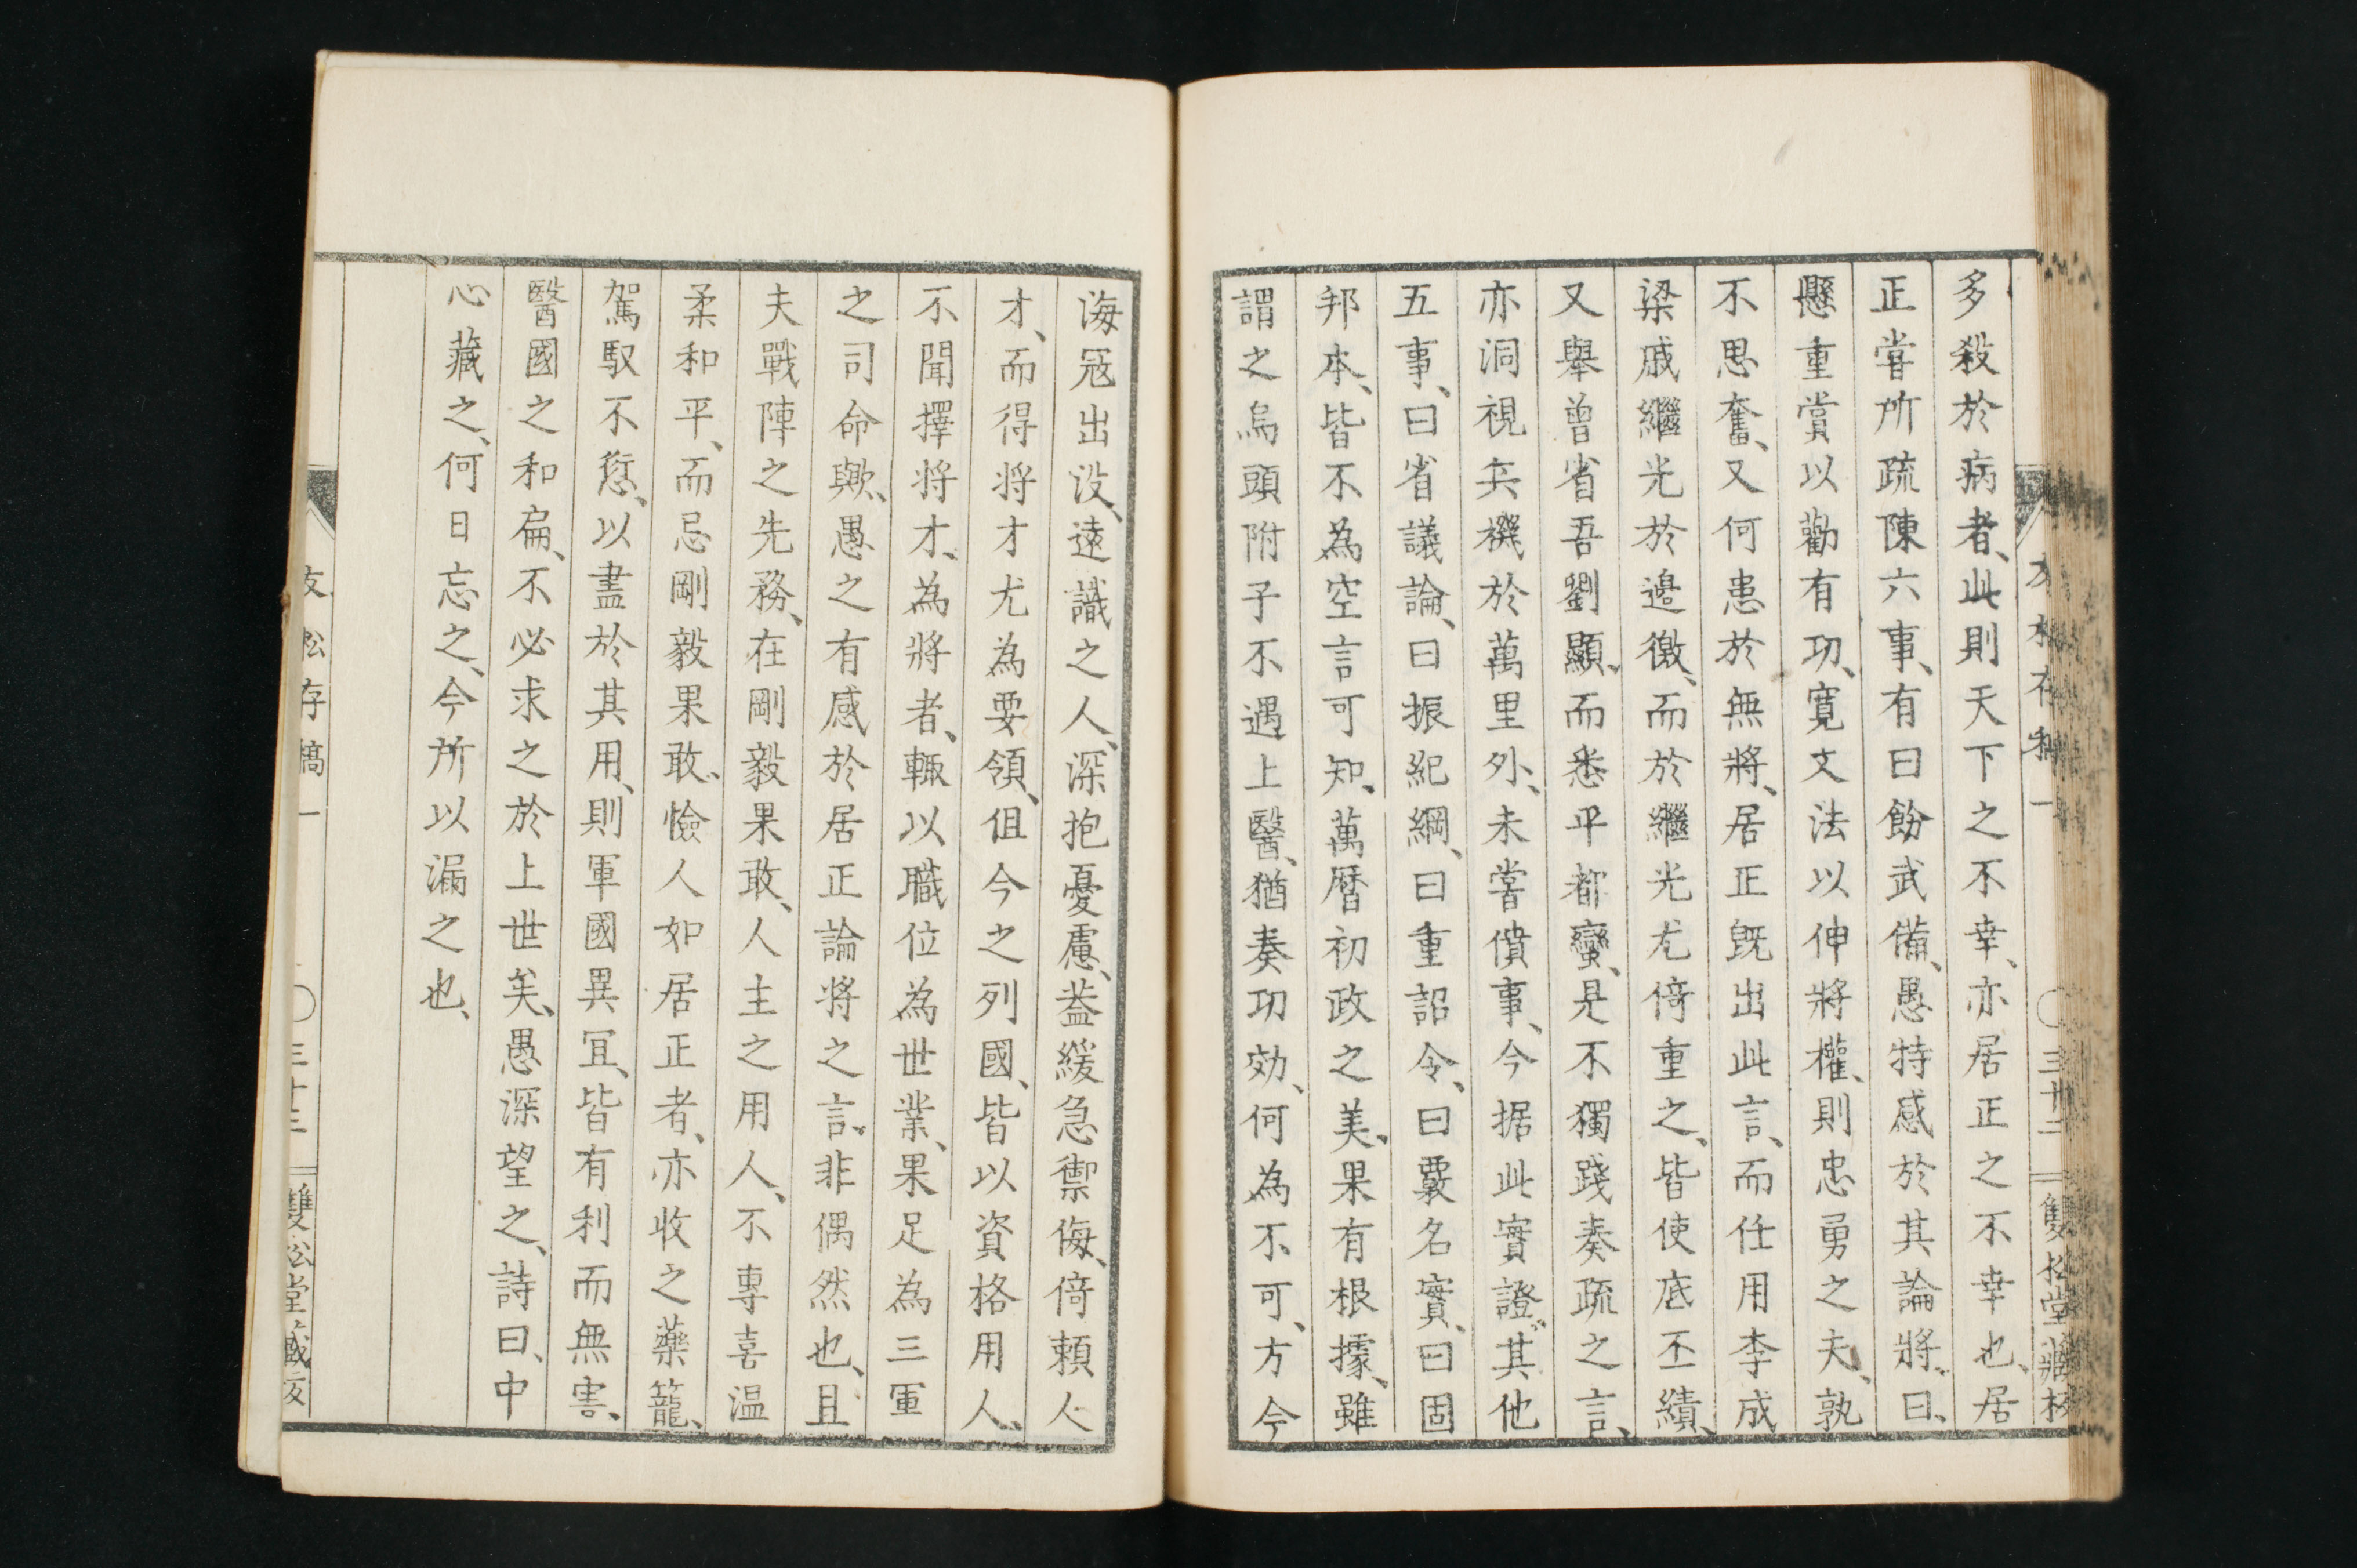 多殺於病者、此則天下之不幸、亦居正之不幸也、居
正嘗所疏陳六事、有曰飭武備、愚特感於其論將、曰、
懸重賞以勸有功、寬文法以伸將權、則忠勇之夫、孰
不思奮、又何患於無將、居正既出此言、而任用李成
梁戚繼光於邊徼、而於繼光尤倚重之、皆使底丕績、
又舉曾省吾劉顯、而悉平都蠻、是不獨踐奏疏之言、
亦洞視兵機於萬里外、未嘗僨事、今据此實證、其他
五事、曰省議論、曰振紀綱、曰重詔令、曰覈名實、曰固
邦本、皆不為空言可知、萬曆初政之美、果有根據、雖
謂之烏頭附子不遇上醫、猶奏功効、何為不可、方今
海寇出沒、遠識之人、深抱憂慮、葢緩急禦侮、倚賴人
才、而得將才尤為要領、但今之列國、皆以資格用人、
不聞擇將才、為將者、輒以職位為世業、果足為三軍
之司命歟、愚之有感於居正論將之言、非偶然也、且
夫戰陣之先務、在剛毅果敢、人主之用人、不專喜温
柔和平、而忌剛毅果敢、憸人如居正者、亦收之藥籠、
駕馭不愆、以盡於其用、則軍國異冝、皆有利而無害、
醫國之和扁、不必求之於上世矣、愚深望之、詩曰、中
心藏之、何日忘之、今所以漏之也、
松存稿一
〇三十三
雙松堂藏板